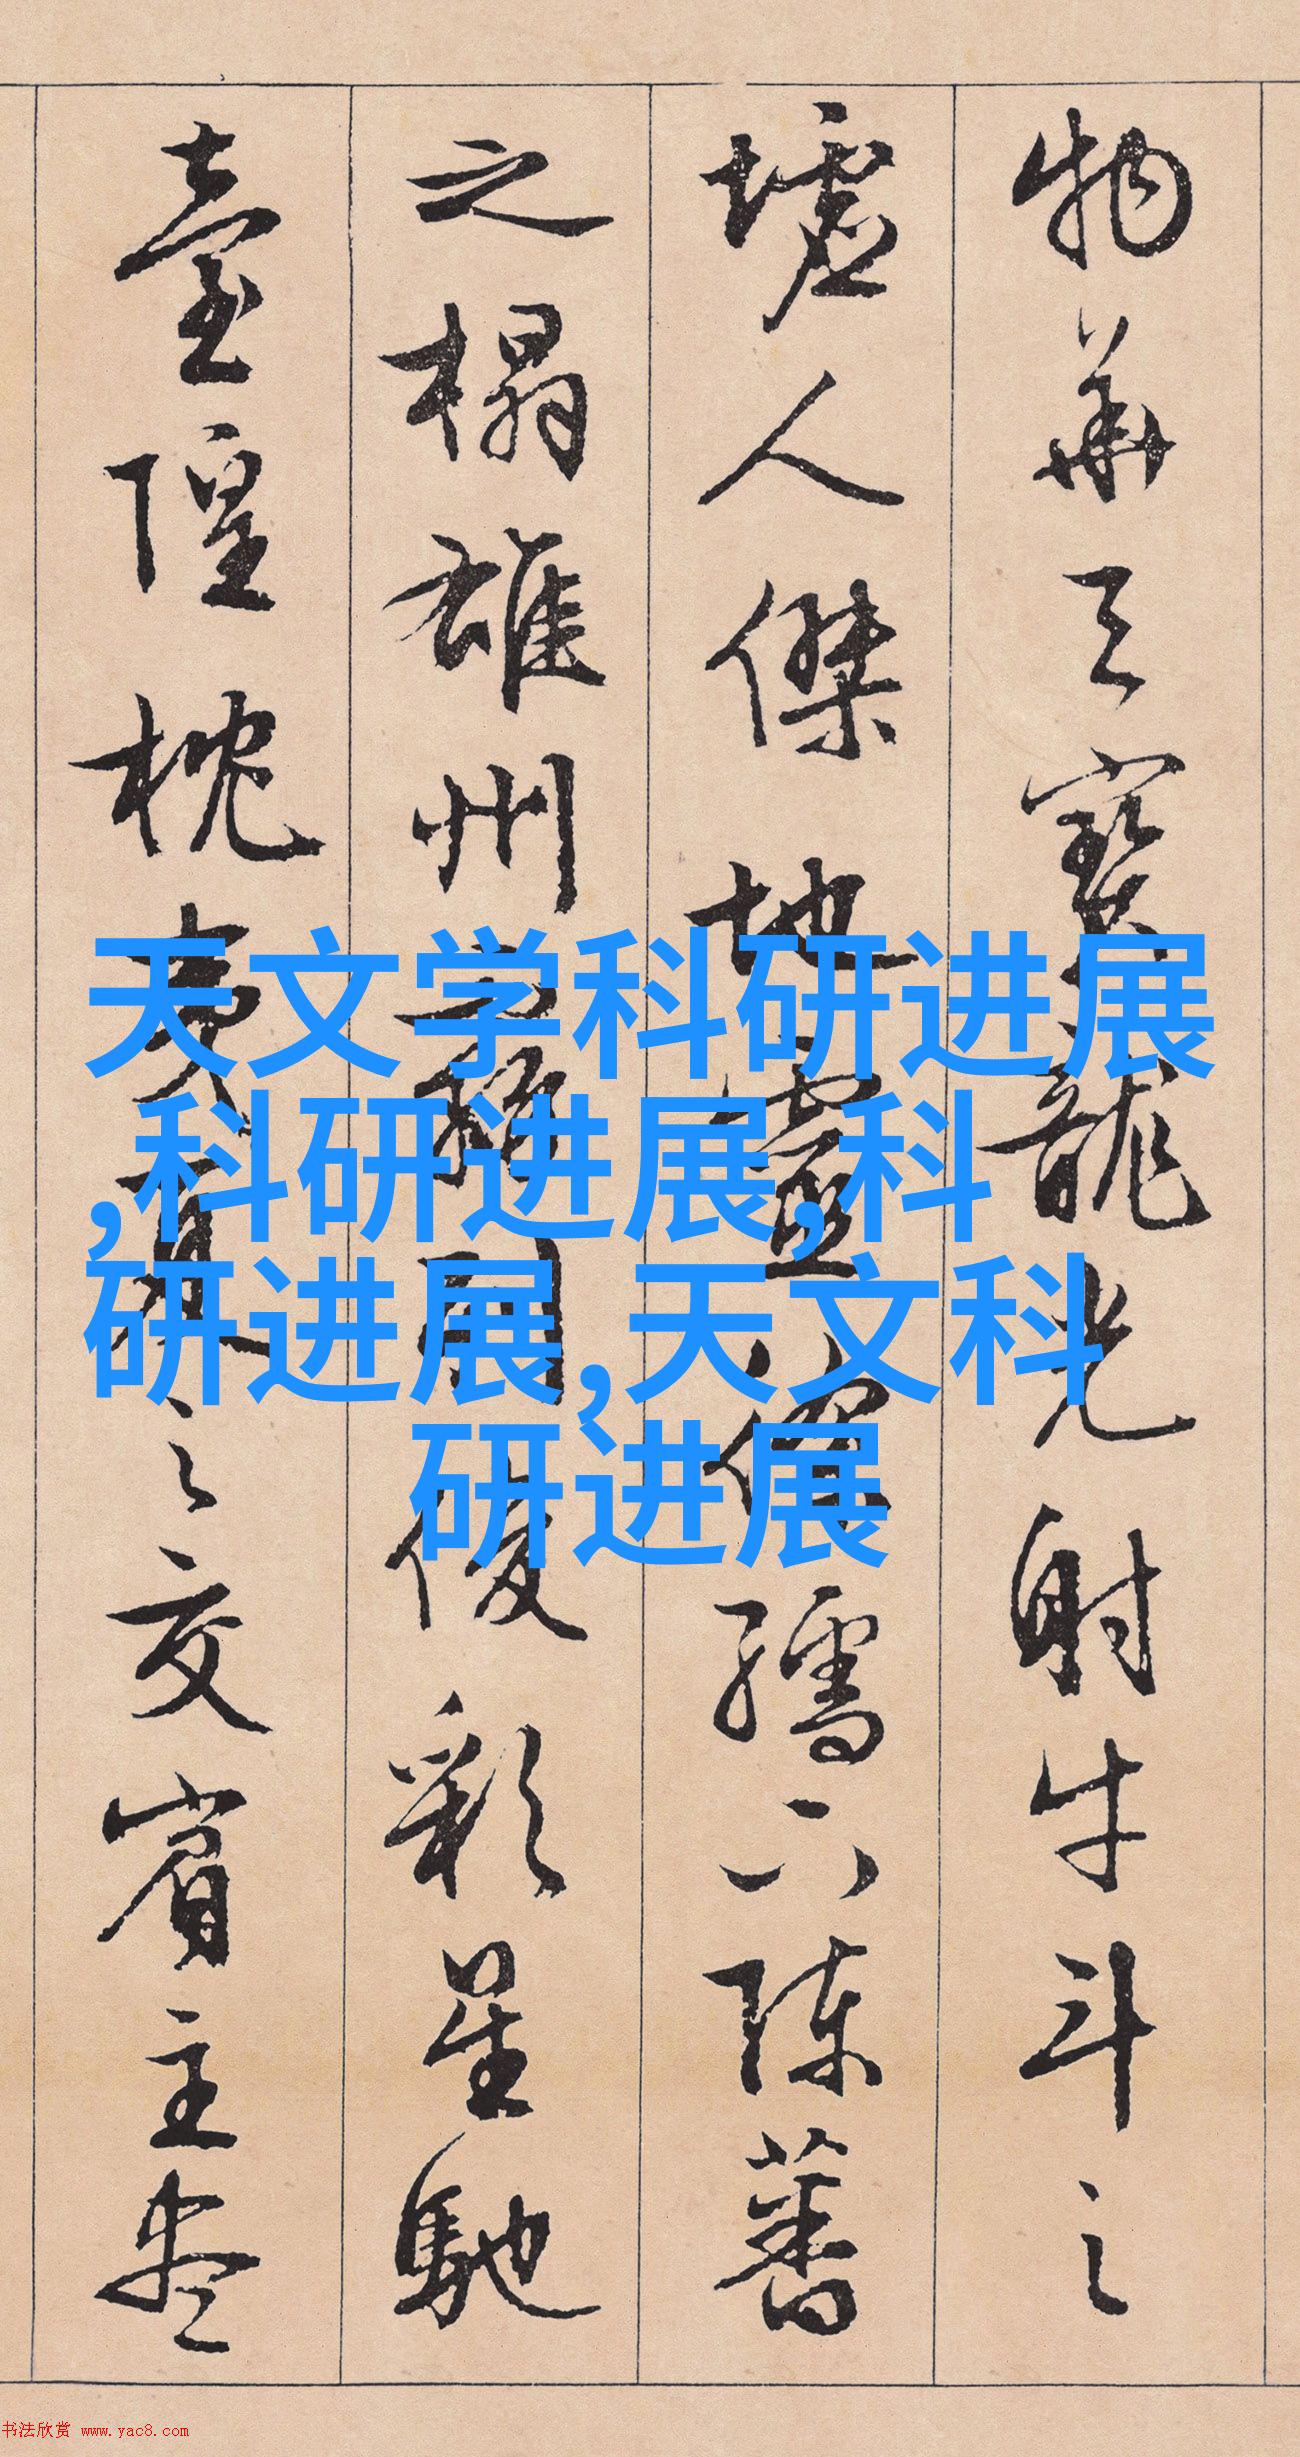 物華天寶龍光射牛斗之
墟人傑地靈徐孺下陳蕃
之榻雄州霧列俊彩星馳
臺隍枕夷夏之交賓主盡
天文学科研进展
,科研进展,科
研进展,天文科
研进展
书法欣赏 www.yac8.com